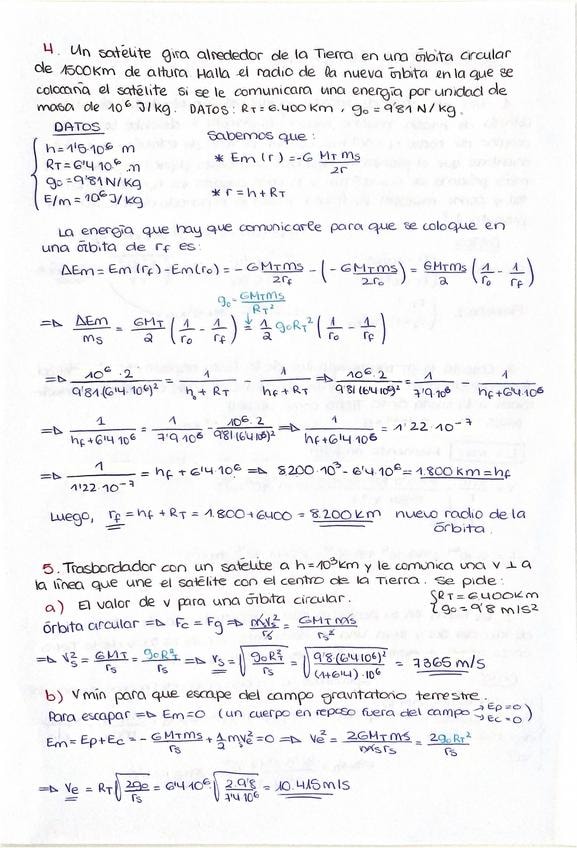 4. Un satélite gira alrededor de la Tierra en una órbita circular
de 1500Km de altura. Halla el radio de la nueva órbita en la que se
colocaría el satélite si se le comunicara una energía por unidad de
masa de 10⁶ J/Kg. DATOS: RT = 6.400 Km, g₀ = 9'81 N/Kg.
DATOS
Sabemos que:
h = 1'5·10⁶ m
* Em(r) = -G MTms/2r
RT = 6'4·10⁶ m
g₀ = 9'81 N/Kg
* r = h + RT
E/m = 10⁶ J/Kg
La energía que hay que comunicarle para que se coloque en
una órbita de rf es:
ΔEm = Em(rf) - Em(r₀) = - GMTms/2rf - (- GMTms/2r₀) = GMTms/2 (1/r₀ - 1/rf)
g₀ = GMTms/RT²
⇒ ΔEm/ms = GMT/2 (1/r₀ - 1/rf) = 1/2 g₀RT² (1/r₀ - 1/rf)
⇒ 10⁶·2/9'81(6'4·10⁶)² = 1/h₀+RT - 1/hf+RT ⇒ 10⁶·2/9'81(6'4·10⁶)² = 1/7'9·10⁶ - 1/hf+6'4·10⁶
⇒ 1/hf+6'4·10⁶ = 1/7'9·10⁶ - 10⁶·2/9'81(6'4·10⁶)² ⇒ 1/hf+6'4·10⁶ = 1'22·10⁻⁷
⇒ 1/1'22·10⁻⁷ = hf + 6'4·10⁶ ⇒ 8200·10³ - 6'4·10⁶ = 1.800 km = hf
Luego, rf = hf + RT = 1.800 + 6400 = 8.200 km nuevo radio de la
órbita.
5. Trasbordador con un satélite a h = 10³ km y le comunica una v ⊥ a
la línea que une el satélite con el centro de la Tierra. Se pide:
a) El valor de v para una órbita circular. { RT = 6400Km
g₀ = 9'8 m/s²
Órbita circular ⇒ Fc = Fg ⇒ msvs²/rs = GMTms/rs²
⇒ vs² = GMT/rs = g₀RT²/rs ⇒ vs = √(g₀RT²/rs) = √(9'8(6'4·10⁶)²/(1+6'4)·10⁶) = 7365 m/s
b) Vmín para que escape del campo gravitatorio terrestre.
Para escapar ⇒ Em = 0 (un cuerpo en reposo fuera del campo → Ep = 0
→ Ec = 0)
Em = Ep + Ec = - GMTms/rs + 1/2 msve² = 0 ⇒ ve² = 2GMTms/msrs = 2g₀RT²/rs
⇒ ve = RT √(2g₀/rs) = 6'4·10⁶ √(2·9'8/7'4·10⁶) = 10.415 m/s